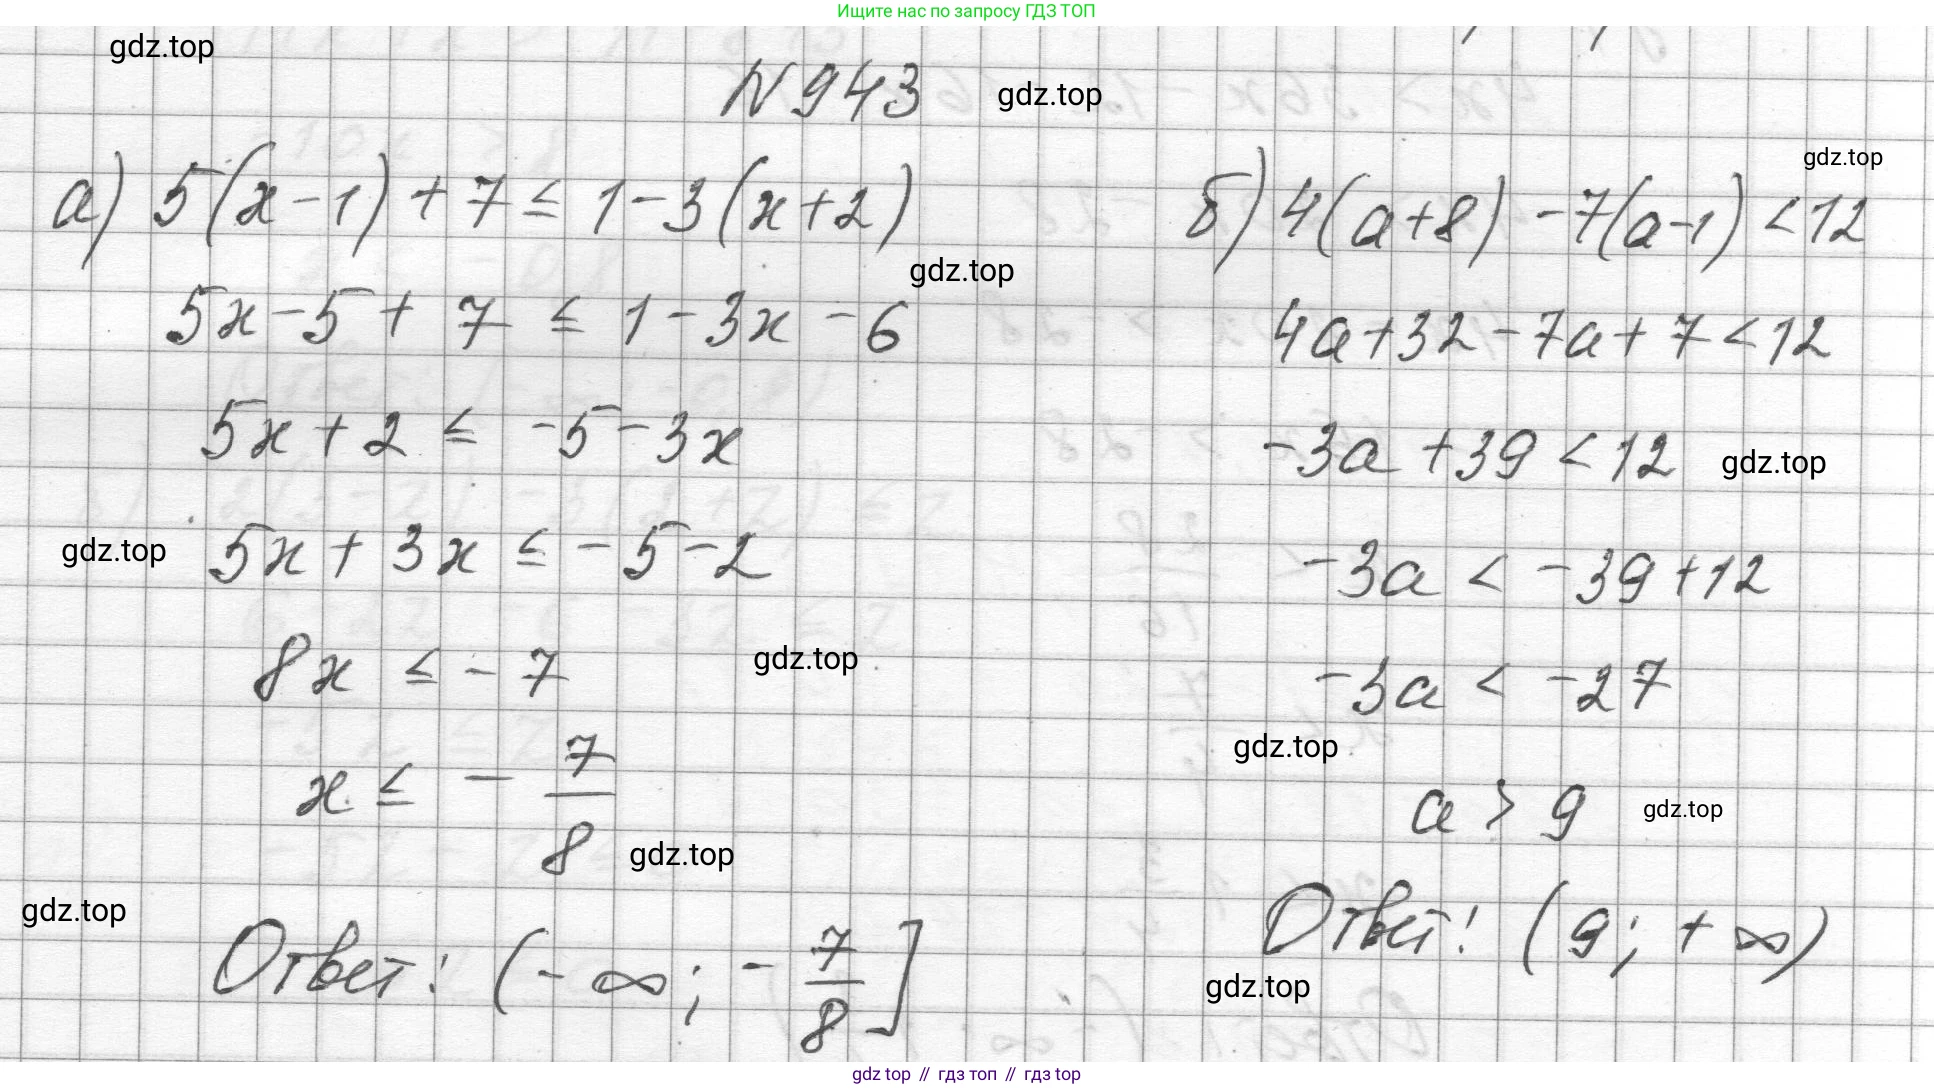 Ищите нас по запросу ГДЗ ТОП
gdz.top
N 943
gdz.top
gdz.top
а) 5(x-1) + 7 ≤ 1-3(x+2)
gdz.top
5x-5 + 7 ≤ 1-3x-6
5x+2 ≤ -5-3x
gdz.top
5x+3x ≤ -5-2
8x ≤ -7
gdz.top
x ≤ - 7/8
gdz.top
gdz.top
Ответ: (-∞; - 7/8]
б) 4(a+8) -7(a-1) < 12
4a+32-7a+7<12
-3a+39<12
gdz.top
-3a < -39+12
-3a < -27
gdz.top
a > 9
gdz.top
Ответ: (9; +∞)
gdz.top
gdz top // гдз топ // гдз top